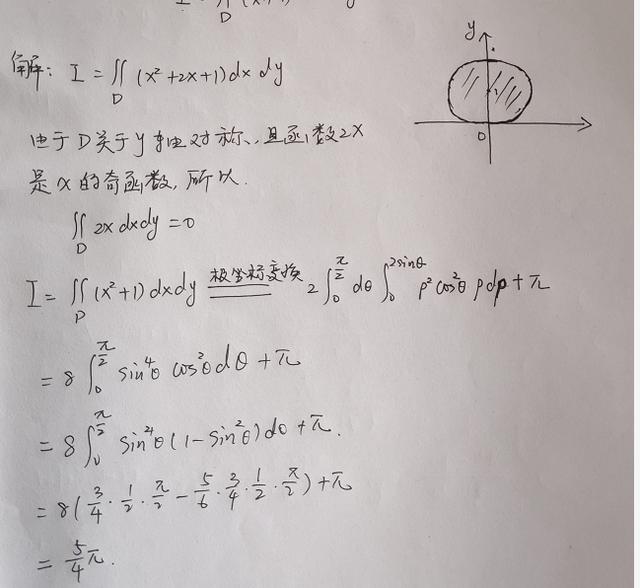 解: I = ∬_D (x²+2x+1) dx dy
由于D关于y轴对称, 且函数2x
是x的奇函数, 所以.
∬_D 2x dx dy = 0
I = ∬_D (x²+1) dx dy 极坐标变换 = 2∫_0^{π/2} dθ ∫_0^{2sinθ} ρ² cos²θ ρ dρ + π
= 8 ∫_0^{π/2} sin⁴θ cos²θ dθ + π
= 8 ∫_0^{π/2} sin⁴θ (1 - sin²θ) dθ + π.
= 8 ( 3/4 · 1/2 · π/2 - 5/6 · 3/4 · 1/2 · π/2 ) + π
= 5/4 π.
y
0